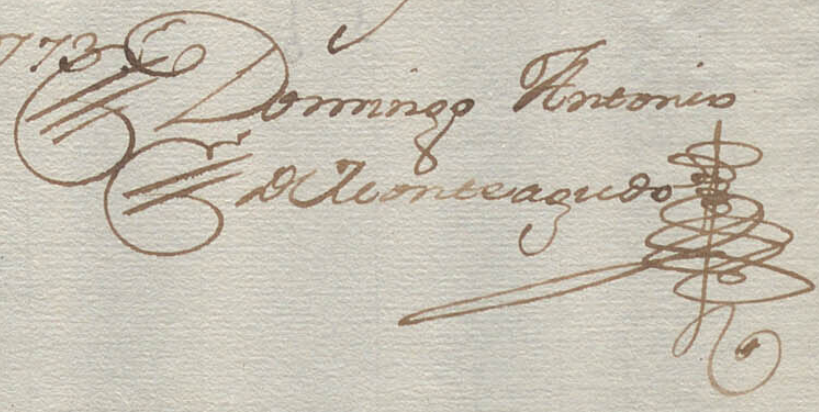 1773
Domingo Antonio
de Monteagudo